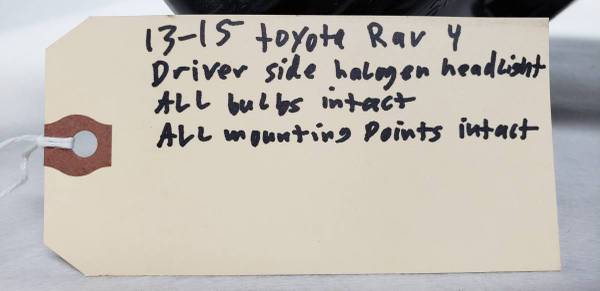 13-15 toyota Rav 4
Driver side halogen headlight
ALL bulbs intact
ALL mounting Points intact